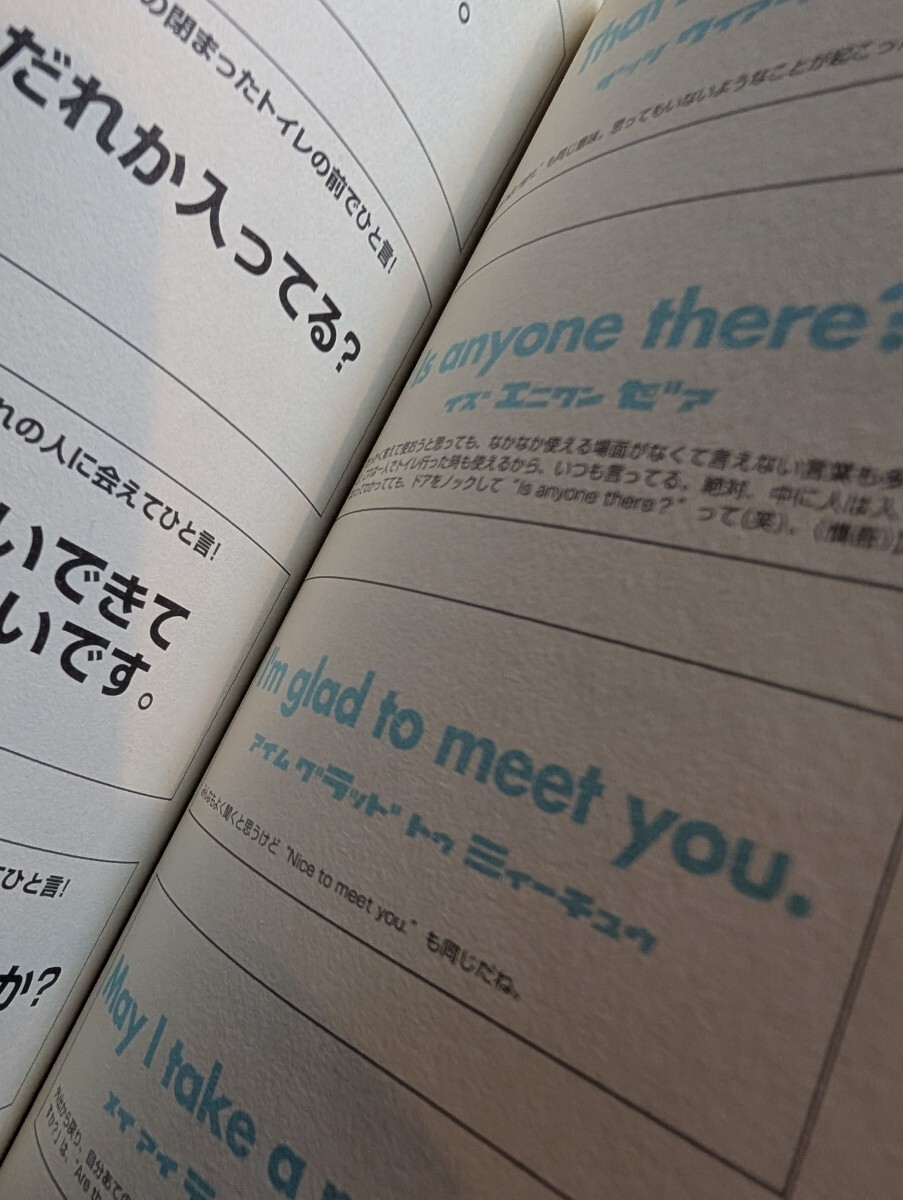 の閉まったトイレの前でひと言!
だれか入ってる?
れの人に会えてひと言!
いできて
いです。
てひと言!
か?
That
ザッツ
も同じ意味。思ってもいないようなことが起こっ
Is anyone there?
イズ エニワン ゼア
覚えて使おうと思っても、なかなか使える場面がなくて言えない言葉も多
一人でトイレ行った時も使えるから、いつも言ってる。絶対、中に人は入
わかってても、ドアをノックして “Is anyone there?” って(笑)。(慎吾)
I'm glad to meet you.
アイム グラッド トゥ ミィーチュウ
みんなもよく聞くと思うけど “Nice to meet you.” も同じだね。
May I take a
メイ アイ テ
外から戻り、自分あての
すか?」は、“Are th